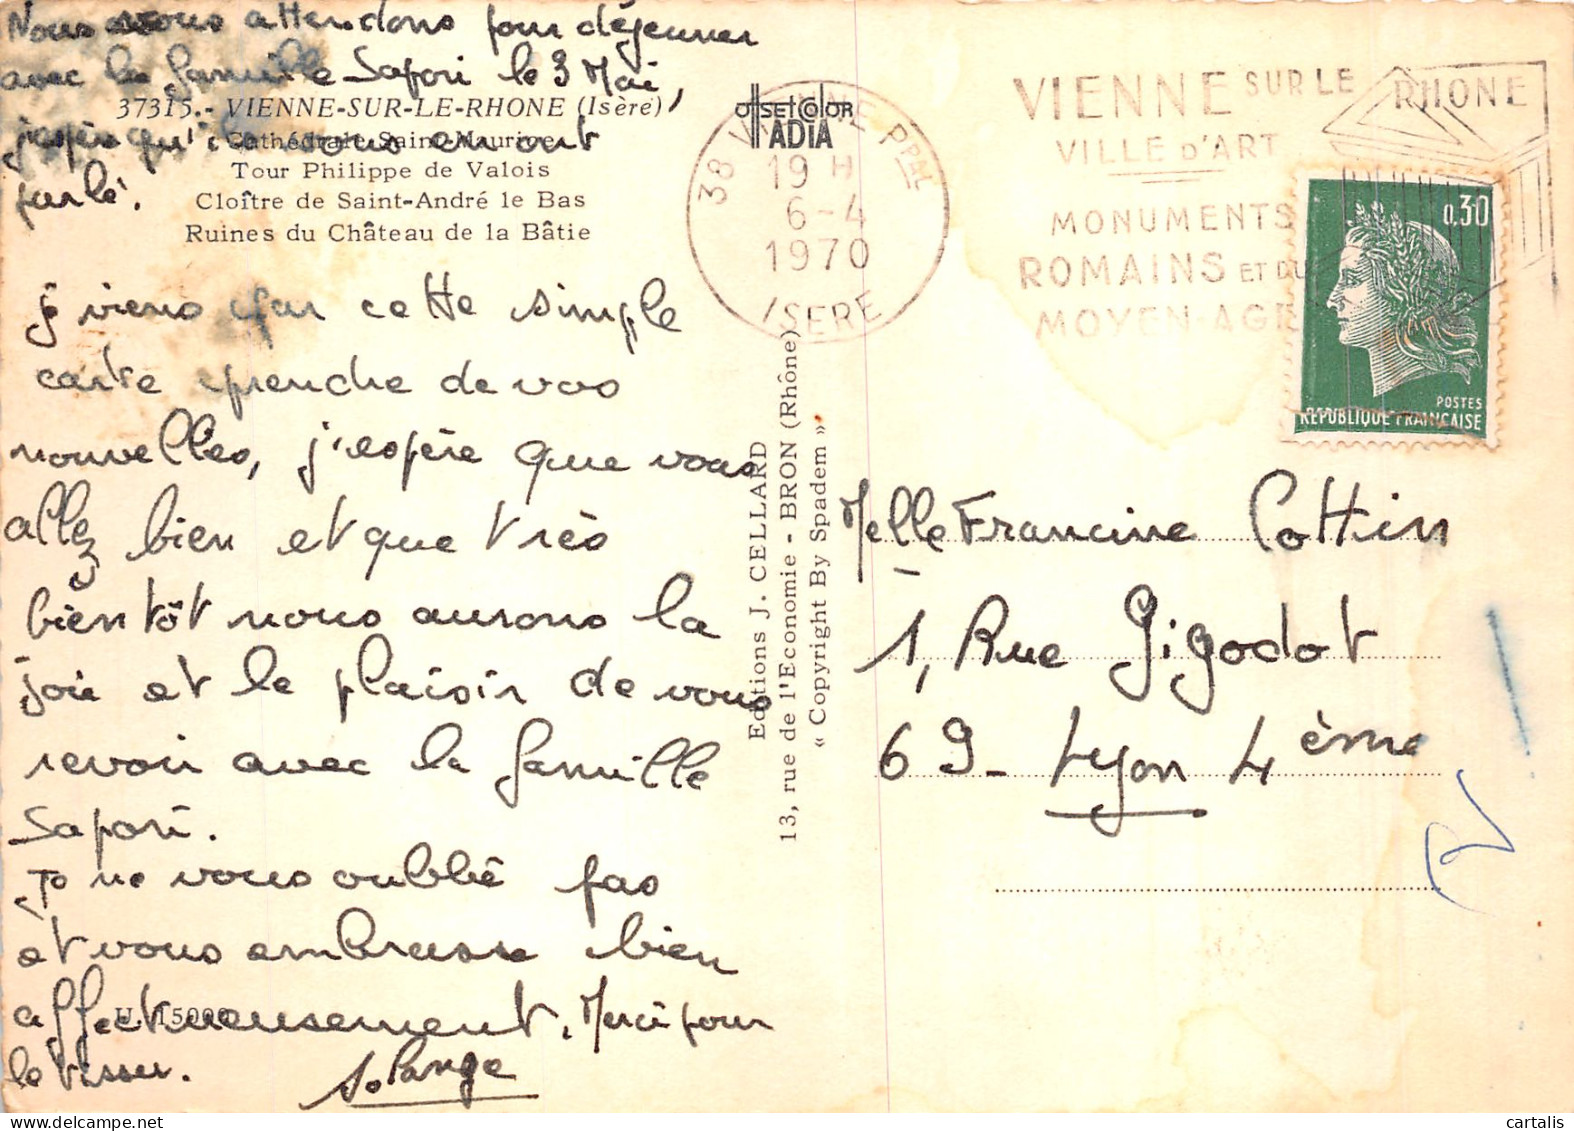 Nous vous attendons pour déjeuner
avec la famille Sapori le 3 Mai,
j'espère qu'ils vous en ont
parlé.
37315.- VIENNE-SUR-LE-RHONE (Isère)
Cathédrale Saint-Maurice
Tour Philippe de Valois
Cloître de Saint-André le Bas
Ruines du Château de la Bâtie
je viens par cette simple
carte prendre de vos
nouvelles, j'espère que vous
allez bien et que très
bientôt nous aurons la
joie et le plaisir de vous
revoir avec la famille
Sapori.
Je ne vous oublie pas
et vous embrasse bien
affectueusement. Merci pour
le tissu. Solange
U. 15000
offset color
ADIA
Editions J. CELLARD
13, rue de l'Economie - BRON (Rhône)
« Copyright By Spadem »
38 VIENNE PPAL
19 H
6-4
1970
ISERE
VIENNE SUR LE RHONE
VILLE D'ART
MONUMENTS
ROMAINS ET DU
MOYEN-AGE
0,30
POSTES
REPUBLIQUE FRANÇAISE
Melle Francine Cottin
1, Rue Gigodot
69 - Lyon 4ème